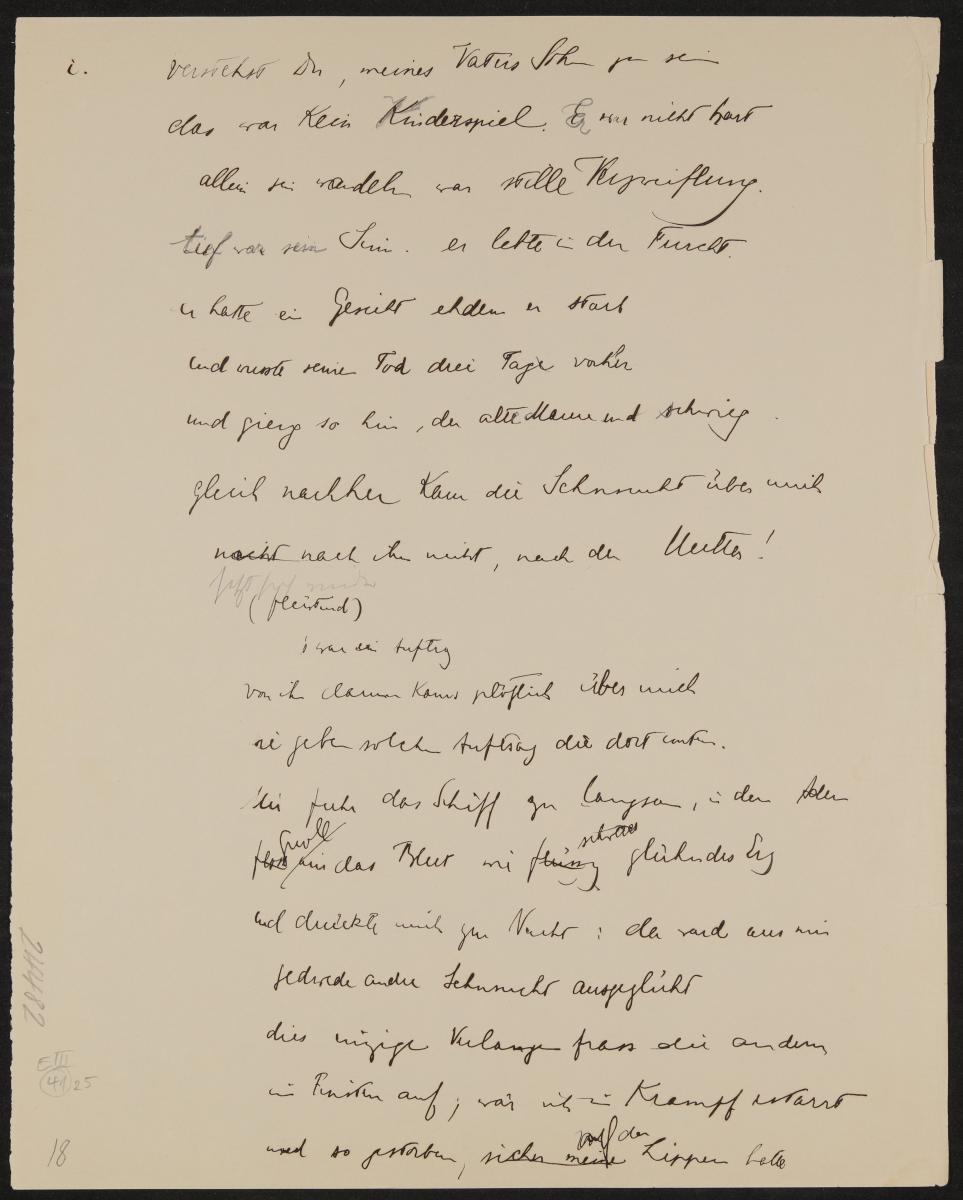 i.
verstehst Du, meines Vaters Sohn zu sein
das war Kein Kinderspiel. Er war nicht hart
allein sein wandeln war stille Verzweiflung.
tief war sein Sinn. er lebte in der Furcht.
er hatte ein Gesicht ehdem er starb
und wusste seinen Tod drei Tage vorher
und gieng so hin, der alte Mann und schwieg
gleich nachher Kam die Sehnsucht über mich
nicht nach ihm nicht, nach der Mutter!
(flüsternd)
's war ein Auftrag
von ihr darum kams plötzlich über mich
sie geben solchen Auftrag die dort unten.
mir fuhr das Schiff zu langsam, in den Adern
quoll mir das Blut wie flüssig glühendes Erz
und drückte mich zur Nacht: da ward aus mir
jedwede andre Sehnsucht ausgeglüht
dies einzige Verlangen frass die andern
im Finstern auf; wär ich in Krampf erstarrt
und so gestorben, sicher meine auf den Lippen hätte
E III
41 25
18